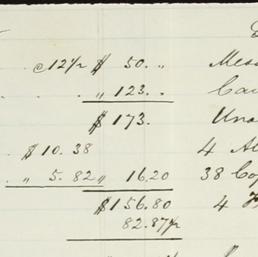 @ 12½ $ 50. „ Mess
„ 123. . Cau
$ 173. Una
$ 10.38 4 Al
„ 5.82 „ 16.20 38 Cop
$156.80 4
82.87½